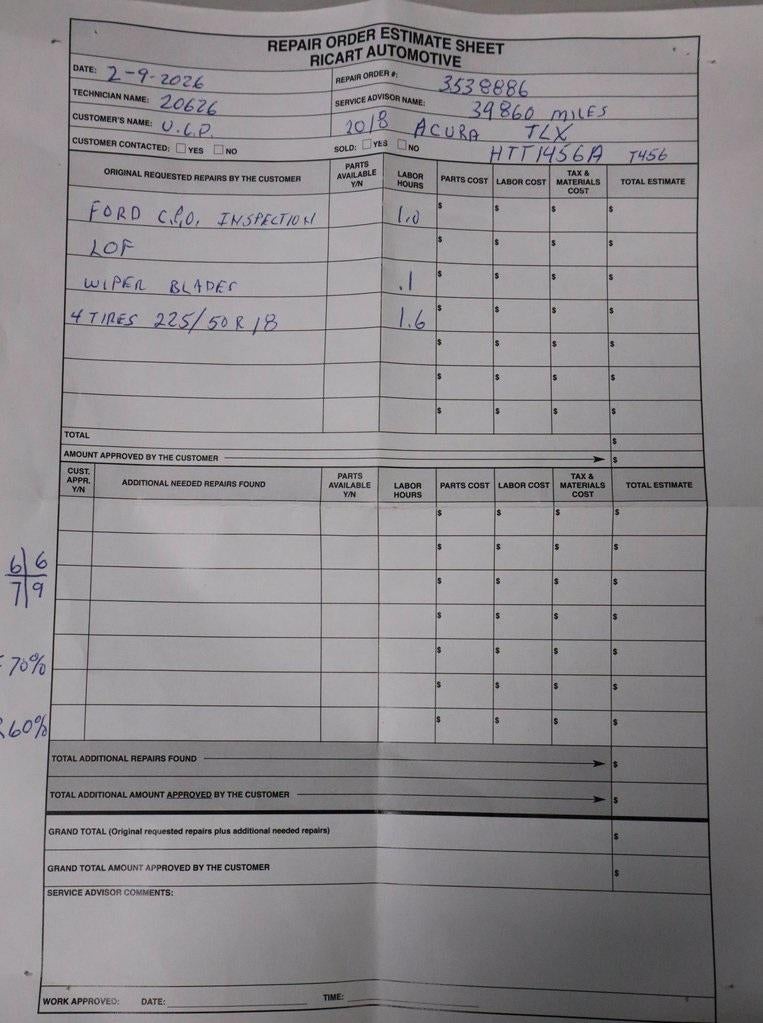 REPAIR ORDER ESTIMATE SHEET
RICART AUTOMOTIVE
DATE: 2-9-2026
REPAIR ORDER #: 3538886
TECHNICIAN NAME: 20626
SERVICE ADVISOR NAME: 39860 MILES
CUSTOMER'S NAME: U.C.P.
2018 ACURA TLX
CUSTOMER CONTACTED: YES NO
SOLD: YES NO
HTT1456A T456
ORIGINAL REQUESTED REPAIRS BY THE CUSTOMER PARTS AVAILABLE Y/N LABOR HOURS PARTS COST LABOR COST TAX & MATERIALS COST TOTAL ESTIMATE
FORD C.P.O. INSPECTION 1.0 $ $ $ $
LOF $ $ $ $
WIPER BLADES .1 $ $ $ $
4 TIRES 225/50R18 1.6 $ $ $ $
$ $ $ $
$ $ $ $
$ $ $ $
TOTAL $
AMOUNT APPROVED BY THE CUSTOMER $
CUST. APPR. Y/N ADDITIONAL NEEDED REPAIRS FOUND PARTS AVAILABLE Y/N LABOR HOURS PARTS COST LABOR COST TAX & MATERIALS COST TOTAL ESTIMATE
$ $ $ $
$ $ $ $
6 6
7 9
$ $ $ $
$ $ $ $
70%
$ $ $ $
$ $ $ $
60%
$ $ $ $
TOTAL ADDITIONAL REPAIRS FOUND $
TOTAL ADDITIONAL AMOUNT APPROVED BY THE CUSTOMER $
GRAND TOTAL (Original requested repairs plus additional needed repairs) $
GRAND TOTAL AMOUNT APPROVED BY THE CUSTOMER $
SERVICE ADVISOR COMMENTS:
WORK APPROVED: DATE: TIME: